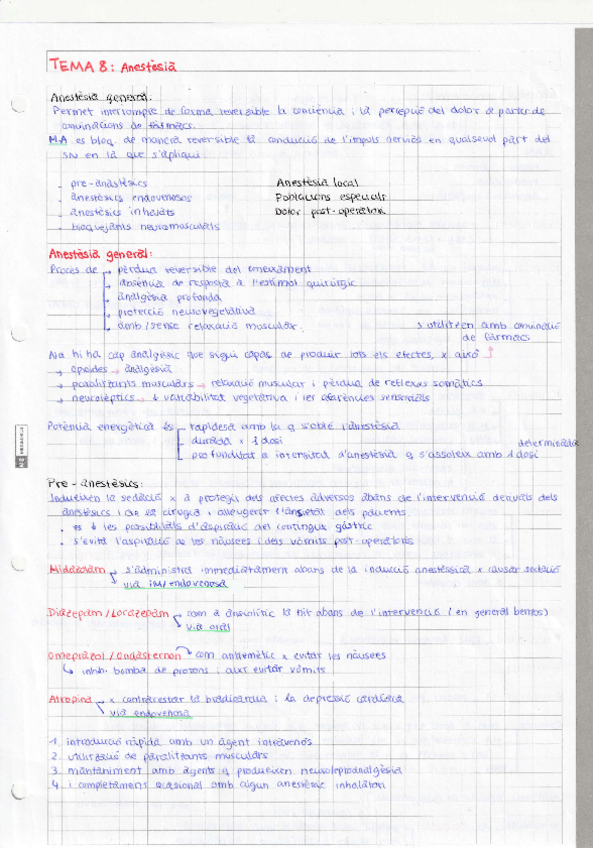 TEMA 8: Anestèsia
Anestèsia general:
Permet interrompre de forma reversible la conciència i la percepció del dolor a partir de
combinacions de fàrmacs.
MA es bloq. de manera reversible la conducció de l'impuls nerviós en qualsevol part del
SN en la que s'apliqui
- pre-anestèsics
- anestèsics endovenosos
- anestèsics inhalats
- bloquejants neuromusculars
Anestèsia local
Poblacions especials
Dolor post-operatori
Anestèsia general:
Procés de → pèrdua reversible del
→ absència de resposta a l'estímul quirúrgic
→ analgèsia profunda
→ protecció neurovegetativa
→ amb/sense relaxació muscular.
s'utilitzen amb combinació
de fàrmacs
No hi ha cap analgèsic que sigui capaç de produir tots els efectes, x això
→ opioides → analgèsia
→ paralitzants musculars → relaxació muscular i pèrdua de reflexes somàtics
→ neurolèptics → ↓ variabilitat vegetativa i les aferències sensorials
Potència energètica és rapidesa amb la q s'obté l'anestèsia
durada x 1 dosi
profunditat o intensitat d'anestèsia q s'assoleix amb 1 dosi
determinada
Pre-anestèsics:
Indueixen la sedació x a protegir dels efectes adversos abans de l'intervenció derivats dels
anestèsics i de la cirugia i alleugerir l'ansietat dels pacients.
· ↓ les possibilitats d'aspiració del contingut gàstric
· s'evita l'aspiració de les nàusees i dels vòmits post-operatoris
Midazolam → s'administra immediatament abans de la inducció anestèsica x causar sedació
via IM/endovenosa
Diazepam/Lorazepam com a ansiolític la nit abans de l'intervenció (en general benzos)
via oral
Omeprazol/Ondasternon → com antiemètic x evitar les nàusees
↳ inhb. bomba de protons i així evitar vòmits
Atropina → x contrarestar la bradicàrdia i la depressió cardíaca
via endovenosa
1. introducció ràpida amb un agent intravenós
2. utilització de paralitzants musculars
3. manteniment amb agents q produeixen neuroleproanalgèsia
4. i completament ocasional amb algun anestèsic inhalatori